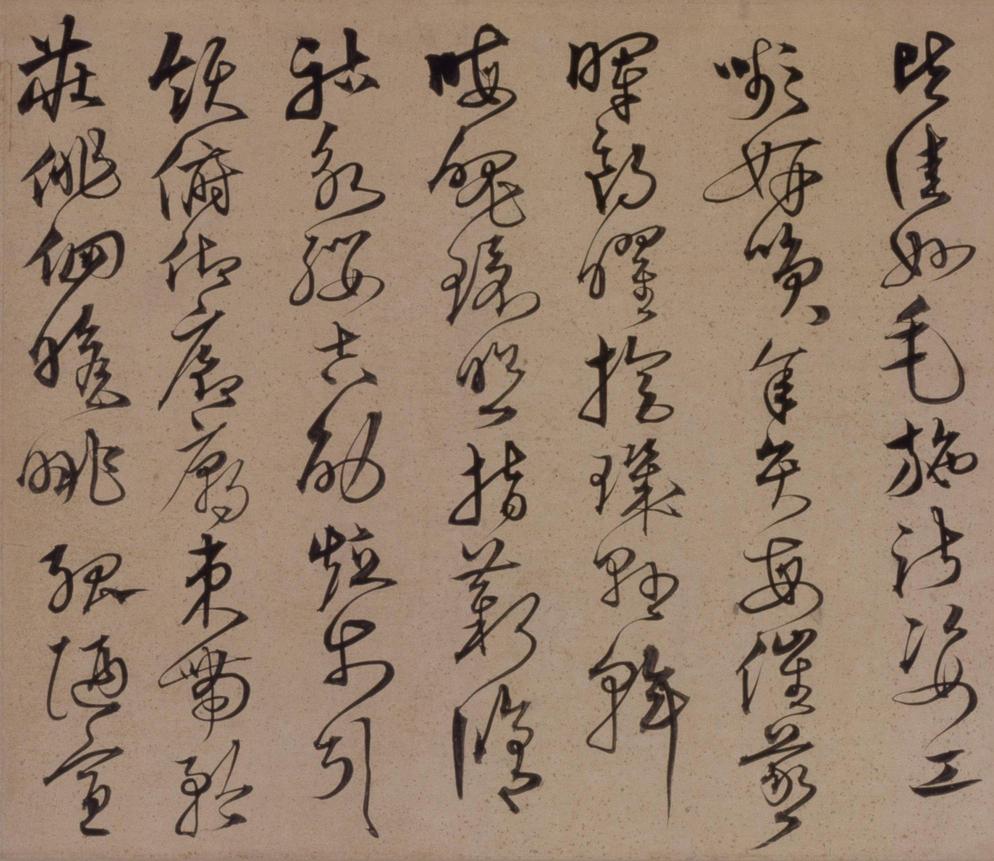 皆佳妙毛施淑姿工
嚬妍笑年矢每催羲
暉朗曜旋璣懸斡
晦魄環照指薪脩
祜永綏吉劭矩步引
領俯仰廊廟束帶矜
莊徘徊瞻眺孤陋寡